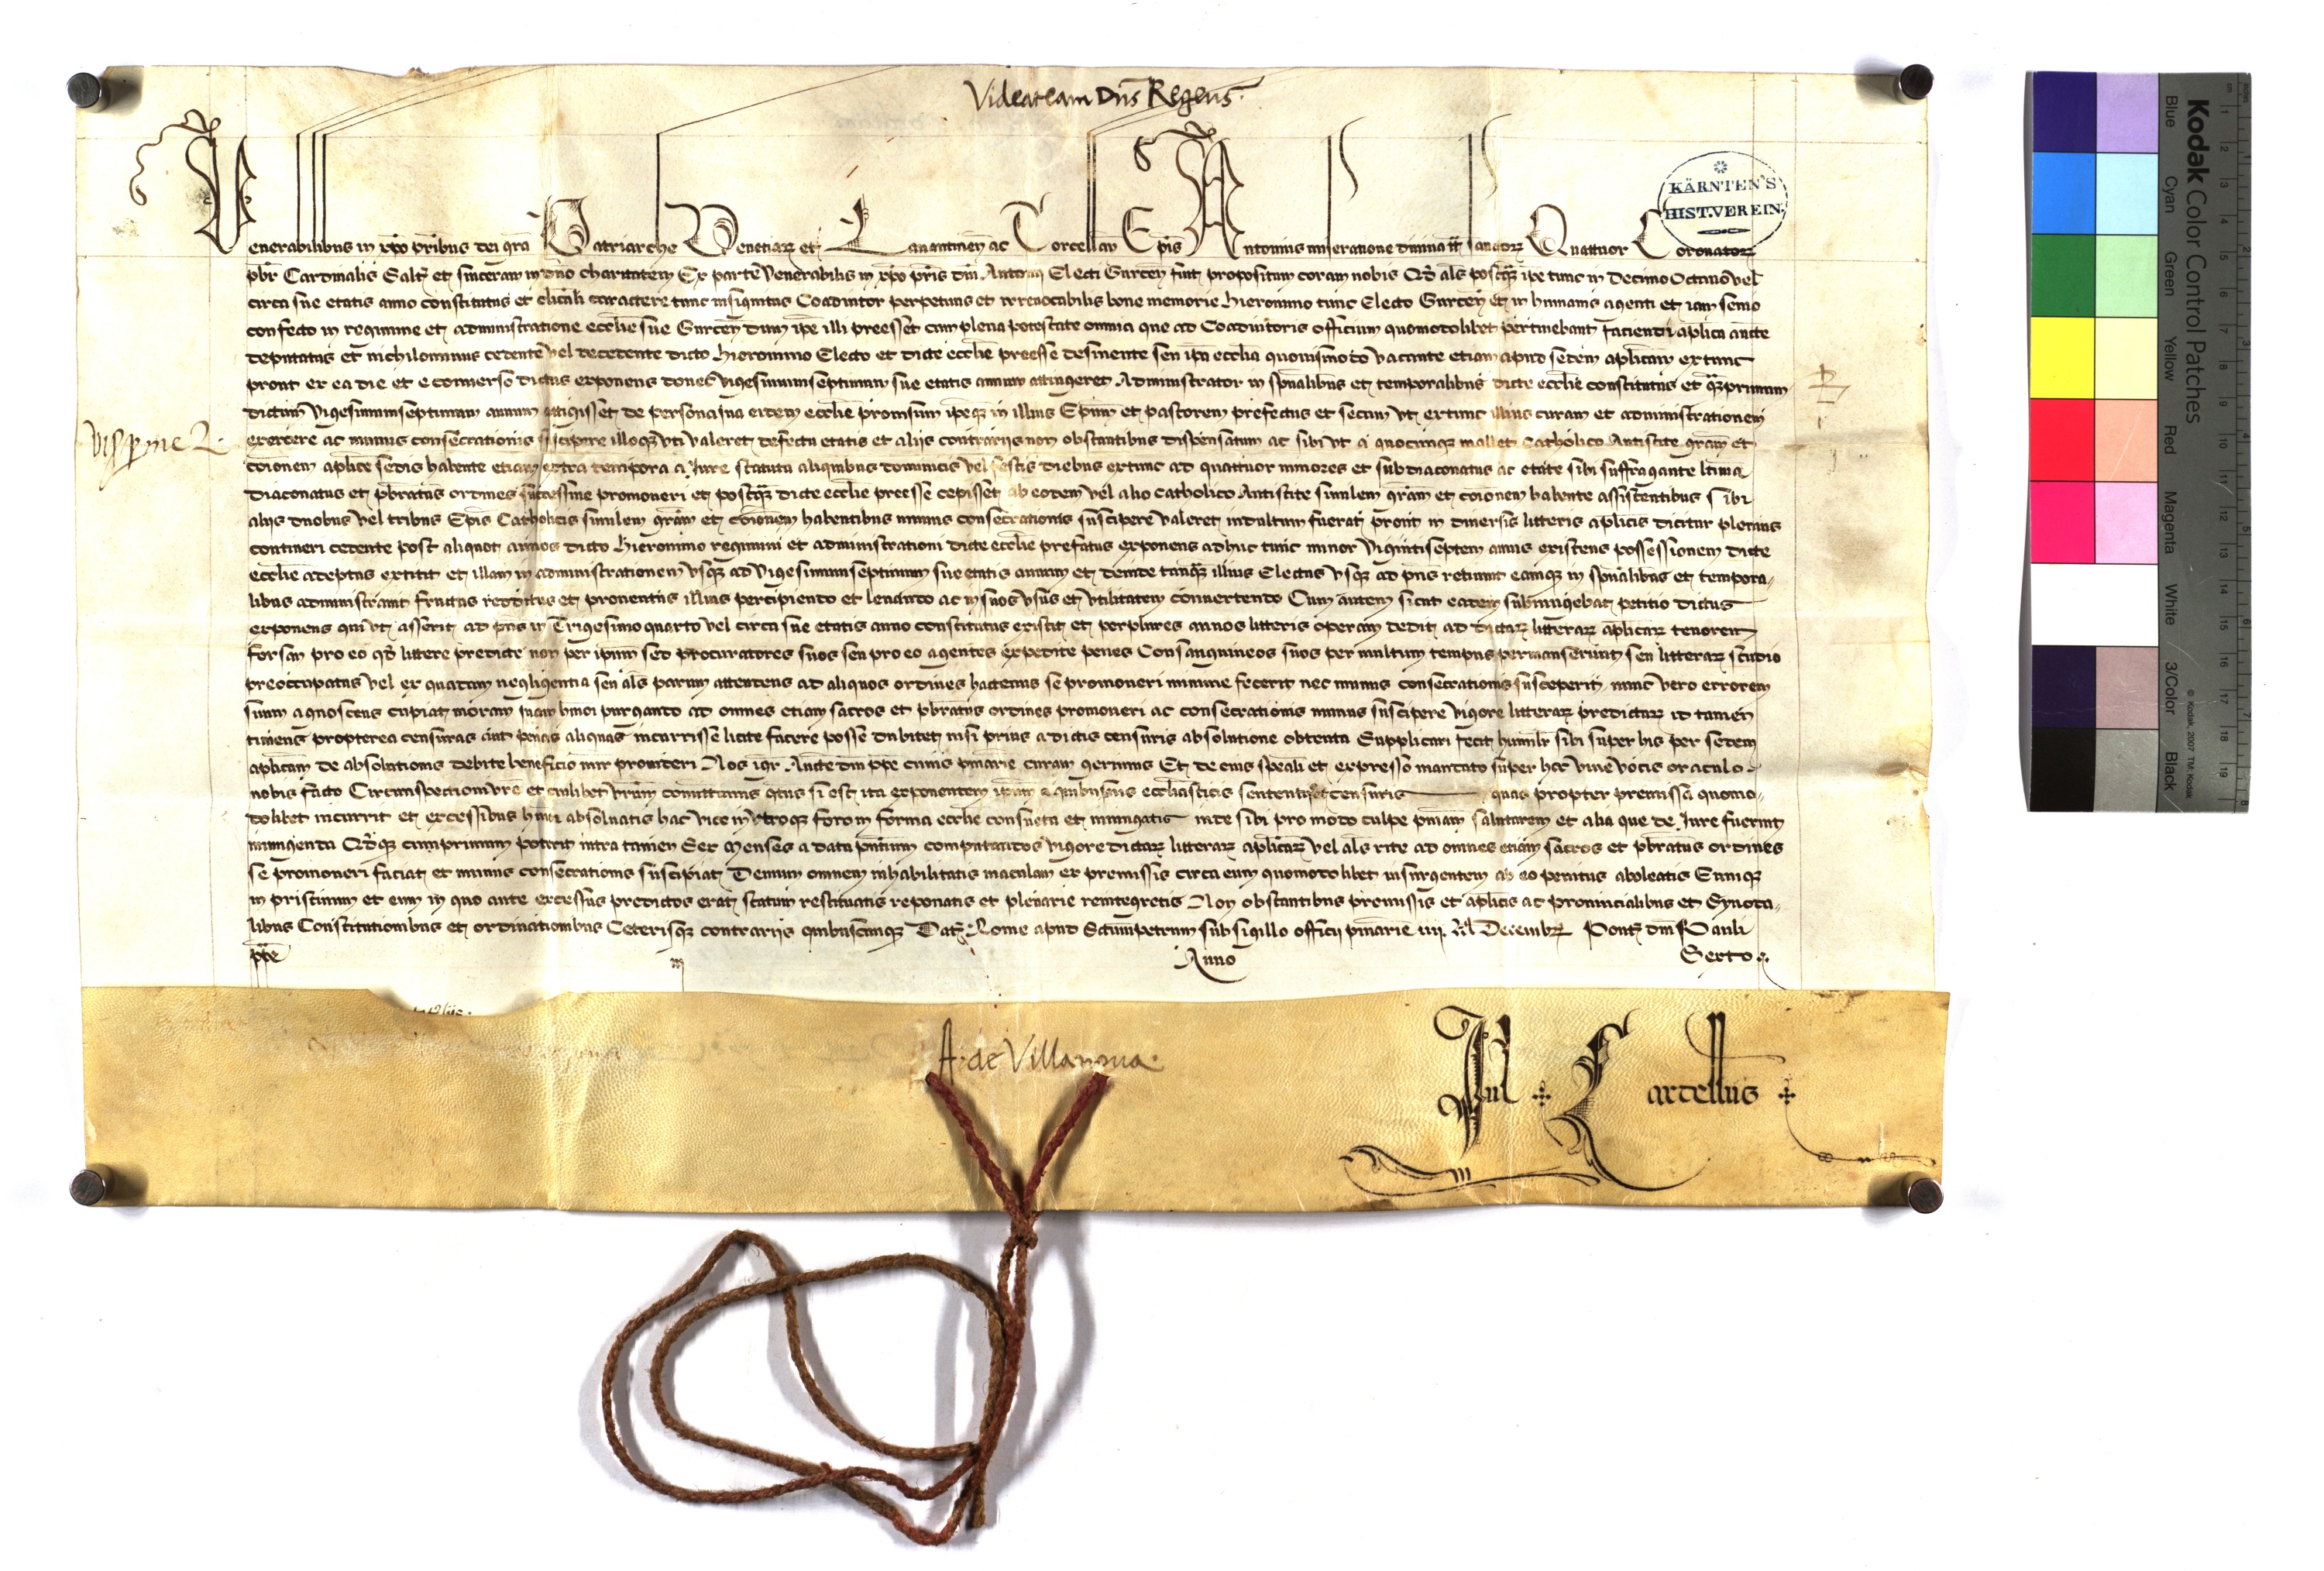 Videat eam Dns Regens
KÄRNTEN'S
HIST. VEREIN.
Venerabilibus in xpo pribus dei gra Patriarche Venetiarz et Lauantineñ ac Torcellañ Epis Antonius miseratione diuina tt sanctorz Quattuor Coronatorz
pbr Cardinalis Saltz et sinceram in dno charitatem Ex parte Venerabilis in xpo pris dni Antonij Electi Gurceñ fuit propositum coram nobis Qd als postqz ipe tunc in Decimo Octauo vel
circa sue etatis anno constitutus et clicali caractere tunc insignitus Coadiutor perpetuus et irreuocabilis bone memorie Hieronimo tunc Electo Gurceñ et in humanis agenti et iam senio
confecto in regimine et administratione ecclie sue Gurceñ dum ipe illi preesset cum plena potestate omnia que ad Coadiutoris officium quomodolibet pertinebant faciendi aplica aucte
deputatus et nichilominus cedente vel decedente dicto Hieronimo Electo et dicte ecclie preesse desinente seu ipa ecclia quouismodo vacante etiam apud sedem aplicam extunc
prout ex ea die et e conuerso dictus exponens donec vigesimumseptimum sue etatis annum attingeret Administrator in spualibus et temporalibus dicte ecclie constitutus et qzprimum
dictum vigesimumseptimum annum attigisset de persona sua eidem ecclie prouisum ipeqz in illius Epum et pastorem prefectus et secum vt extunc illius curam et administrationem
visp me 2.
exercere ac munus consecrationis suscipere illoqz vti valeret defectu etatis et alijs contrarijs non obstantibus dispensatum ac sibi vt a quocunqz mallet Catholico Antistite gram et
coionem aplice sedis habente etiam extra tempora a Jure statuta aliquibus dominicis vel festis diebus extunc ad quattuor minores et subdiaconatus ac etate sibi suffragante ltima
diaconatus et pbratus ordines successiue promoueri et postqz dicte ecclie preesse cepisset ab eodem vel alio catholico Antistite similem gram et coionem habente assistentibus sibi
alijs duobus vel tribus Epis Catholicis similem gram et coionem habentibus munus consecrationis suscipere valeret indultum fuerat prout in diuersis litteris aplicis dicitur plenius
contineri cedente post aliquot annos dicto Hieronimo regimini et administrationi dicte ecclie prefatus exponens adhuc tunc minor vigintiseptem annis existens possessionem dicte
ecclie adeptus extitit et illam in administrationem vsqz ad vigesimumseptimum sue etatis annum et deinde tanqz illius Electus vsqz ad pns retinuit eamqz in spualibus et tempora,
libus administrauit fructus redditus et prouentus illius percipiendo et leuando ac in suos vsus et vtilitatem conuertendo Cum autem sicut eadem subiungebat petitio dictus
exponens qui vt asserit ad pns in Trigesimo quarto vel circa sue etatis anno constitutus existit et perplures annos litteris operam dedit ad dictarz litterarz aplicarz tenorem
forsan pro eo qd littere predicte non per ipum sed procuratores suos seu pro eo agentes expedite penes Consanguineos suos per multum tempus permanserunt seu litterarz studio
preoccupatus vel ex quadam negligentia seu als parum attendens ad aliquos ordines hactenus se promoueri minime fecerit nec munus consecrationis susceperit nunc vero errorem
suum agnoscens cupiat moram suam hmoi purgando ad omnes etiam sacros et pbratus ordines promoueri ac consecrationis munus suscipere vigore litterarz predictarz id tamen
timens propterea censuras aut penas aliquas incurrisse licite facere posse dubitet nisi prius a dictis censuris absolutione obtenta Supplicari fecit humilr sibi super his per sedem
aplicam de absolutionis debite beneficio mir prouideri Nos igr Aucte dni ppe cuius pniarie curam gerimus Et de eius speali et expresso mandato super hoc viue vocis oraculo
nobis facto Circunspectioni vre et cuilibet vrum comittimus qtus si est ita exponentem ipum a quibusuis ecclasticis sententijs et censuris quas propter premissa quomo,
dolibet incurrit et excessibus hmoi absoluatis hac vice in vtroqz foro in forma ecclie consueta et iniungatis inde sibi pro modo culpe pniam salutarem et alia que de Jure fuerint
iniungenda Qdqz cumprimum poterit intra tamen Sex Menses a data pntium computandos vigore dictarz litterarz aplicarz vel als rite ad omnes etiam sacros et pbratus ordines
se promoueri faciat et munus consecrationis suscipiat Demum omnem inhabilitatis maculam ex premissis circa eum quomodolibet insurgentem ab eo penitus aboleatis Eumqz
in pristinum et eum in quo ante excessus predictos erat statum restituatis reponatis et plenarie reintegretis Non obstantibus premissis et aplicis ac prouincialibus et Synoda,
libus Constitutionibus et ordinationibus Ceterisqz contrarijs quibuscunqz Datz Rome apud Sctumpetrum sub sigillo officij pniarie iiij. Kl Decembrz Pontz dni Pauli
ppe iij Anno Sexto
A. de Villanoua.
Jul Cartellus
Kodak Color Control Patches
Blue Cyan Green Yellow Red Magenta White 3/Color Black
© Kodak, 2007 TM: Kodak